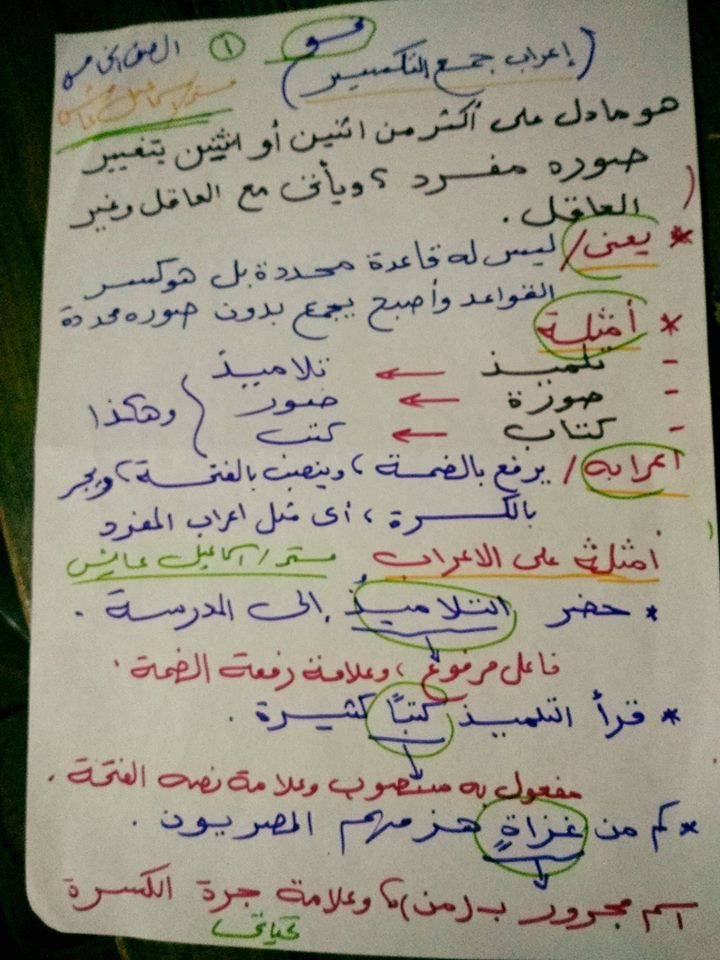 نحو ١ الصف الخامس
(إعراب جمع التكسير)
مستر/اسماعيل عايش
هو مادل على أكثر من اثنين أو اثنتين بتغيير
صوره مفرد ، ويأتى مع العاقل وغير
العاقل .
* يعنى / ليس له قاعدة محددة بل هو كسر
القواعد وأصبح يجمع بدون صوره محددة
* أمثلة
- تلميذ ← تلاميذ
- صورة ← صور
- كتاب ← كتب } وهكذا
اعرابه / يرفع بالضمة ، وينصب بالفتحة ، ويجر
بالكسرة ، أى مثل اعراب المفرد
امثلة على الاعراب مستر/اسماعيل عايش
* حضر التلاميذُ إلى المدرسة .
فاعل مرفوع ، وعلامة رفعة الضمة .
* قرأ التلميذ كتبًا كثيرة .
مفعول به منصوب وعلامة نصبه الفتحة .
* كم من غزاةٍ هزمهم المصريون .
اسم مجرور بـ (من) ، وعلامة جرة الكسرة
تحياتى